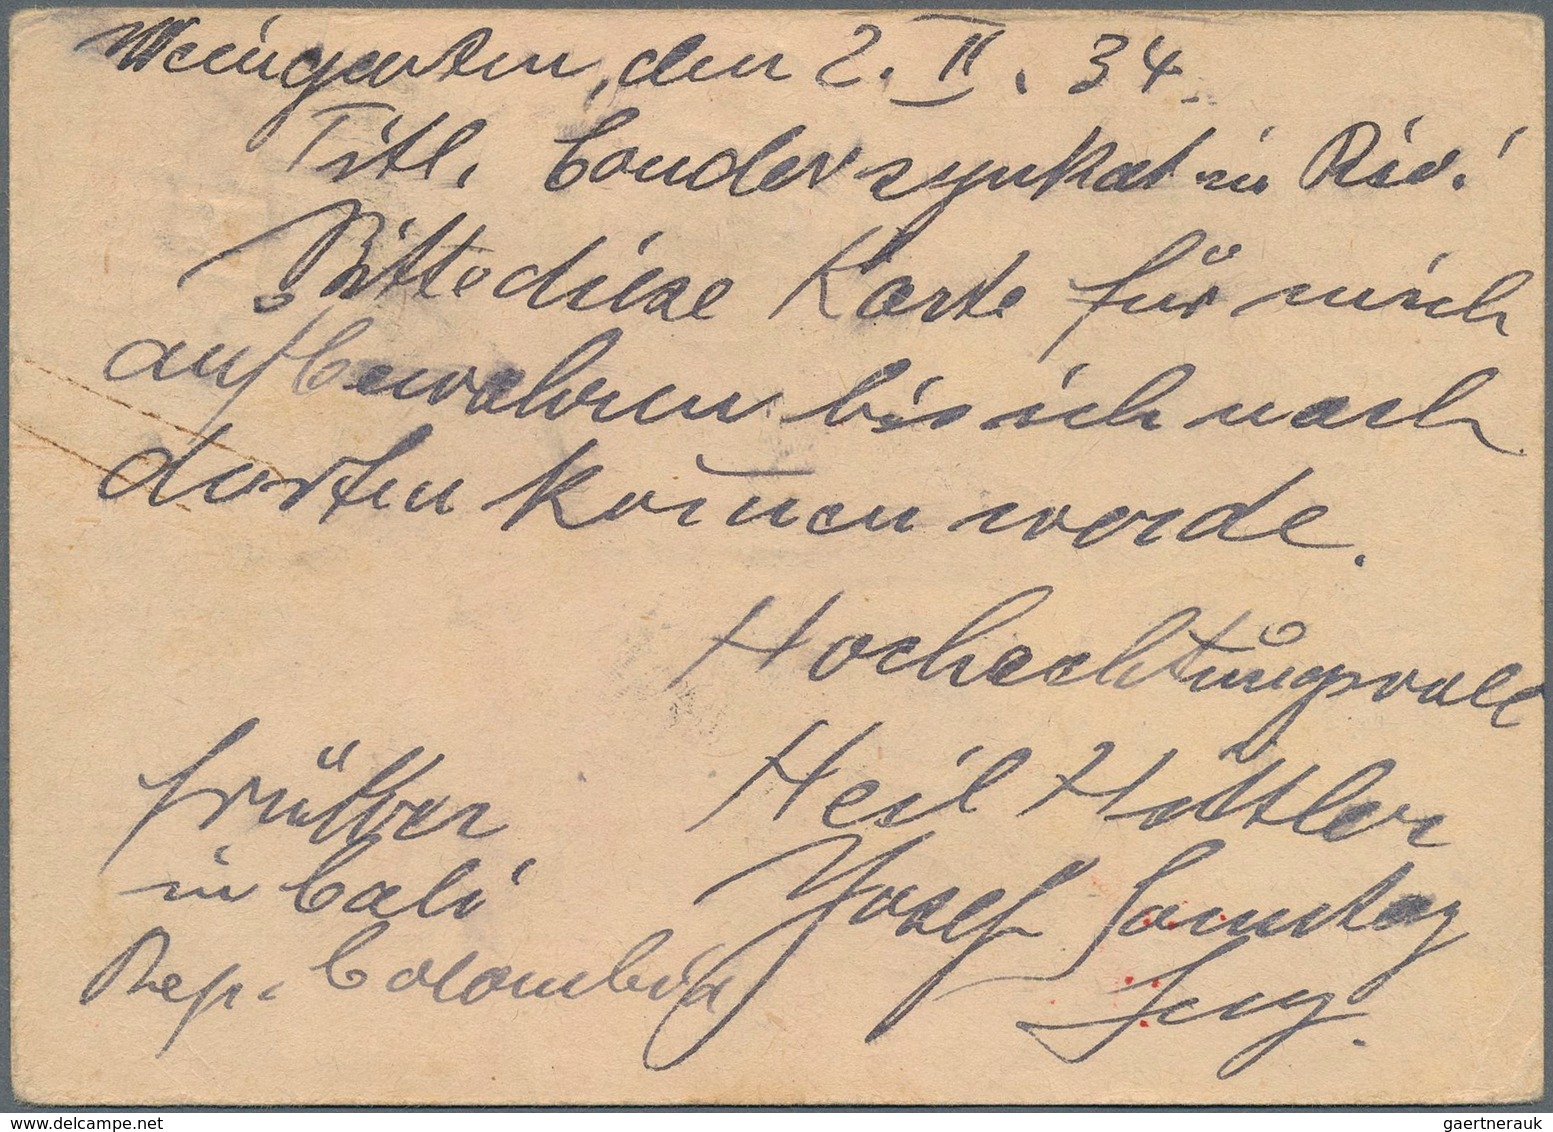 Weingarten, den 2. II. 34.
Titl. Condor synkat in Rio!
Bitte diese Karte für mich
aufbewahren bis ich nach
dorten kom̄en werde.
Hochachtungsvoll
Heil Hittler
Josef Sonntag
Ing.
früher
in Cali
Rep. Colombia
delcampe.net
gaertnerauk